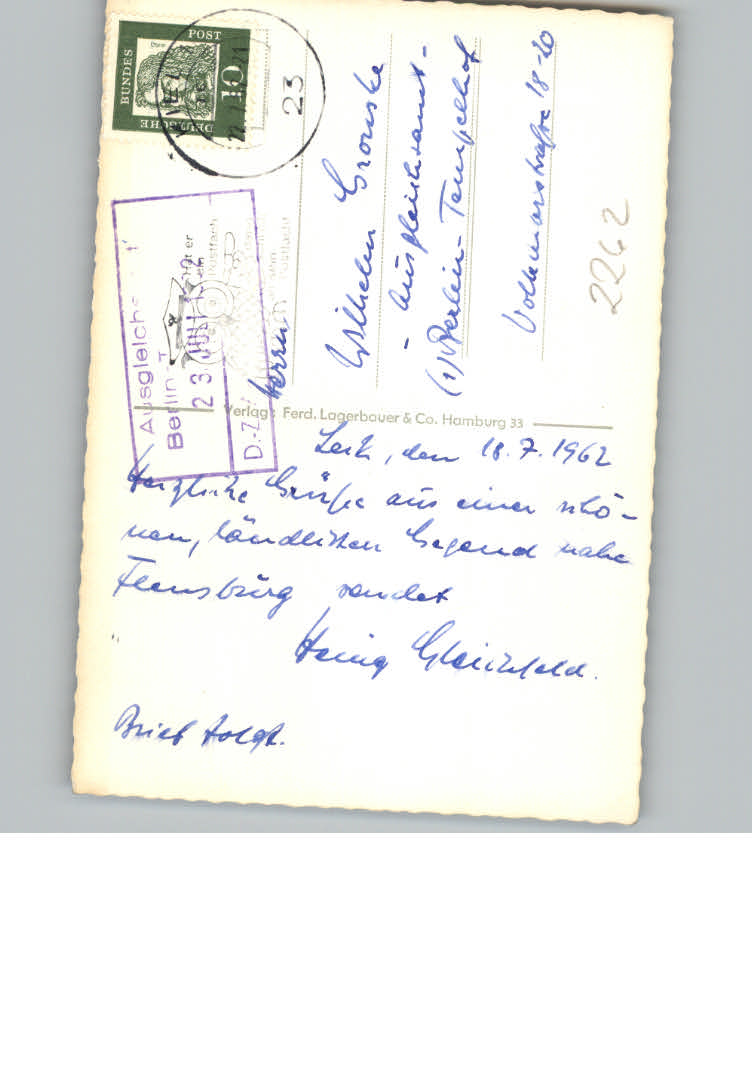 DEUTSCHE
BUNDES
POST
10
23
Ausgleichs
Berlin-T
23. JULI 1962
Postfach
Herrn
Wilhelm
- Ausgleichsamt -
(1) Berlin-Tempelhof
Volkmarstraße 18-20
2262
Verlag: Ferd. Lagerbauer & Co. Hamburg 33
Leck, den 18.7.1962
Herzliche Grüße aus einer schö-
nen, ländlichen Gegend nahe
Flensburg sendet
Brief folgt.